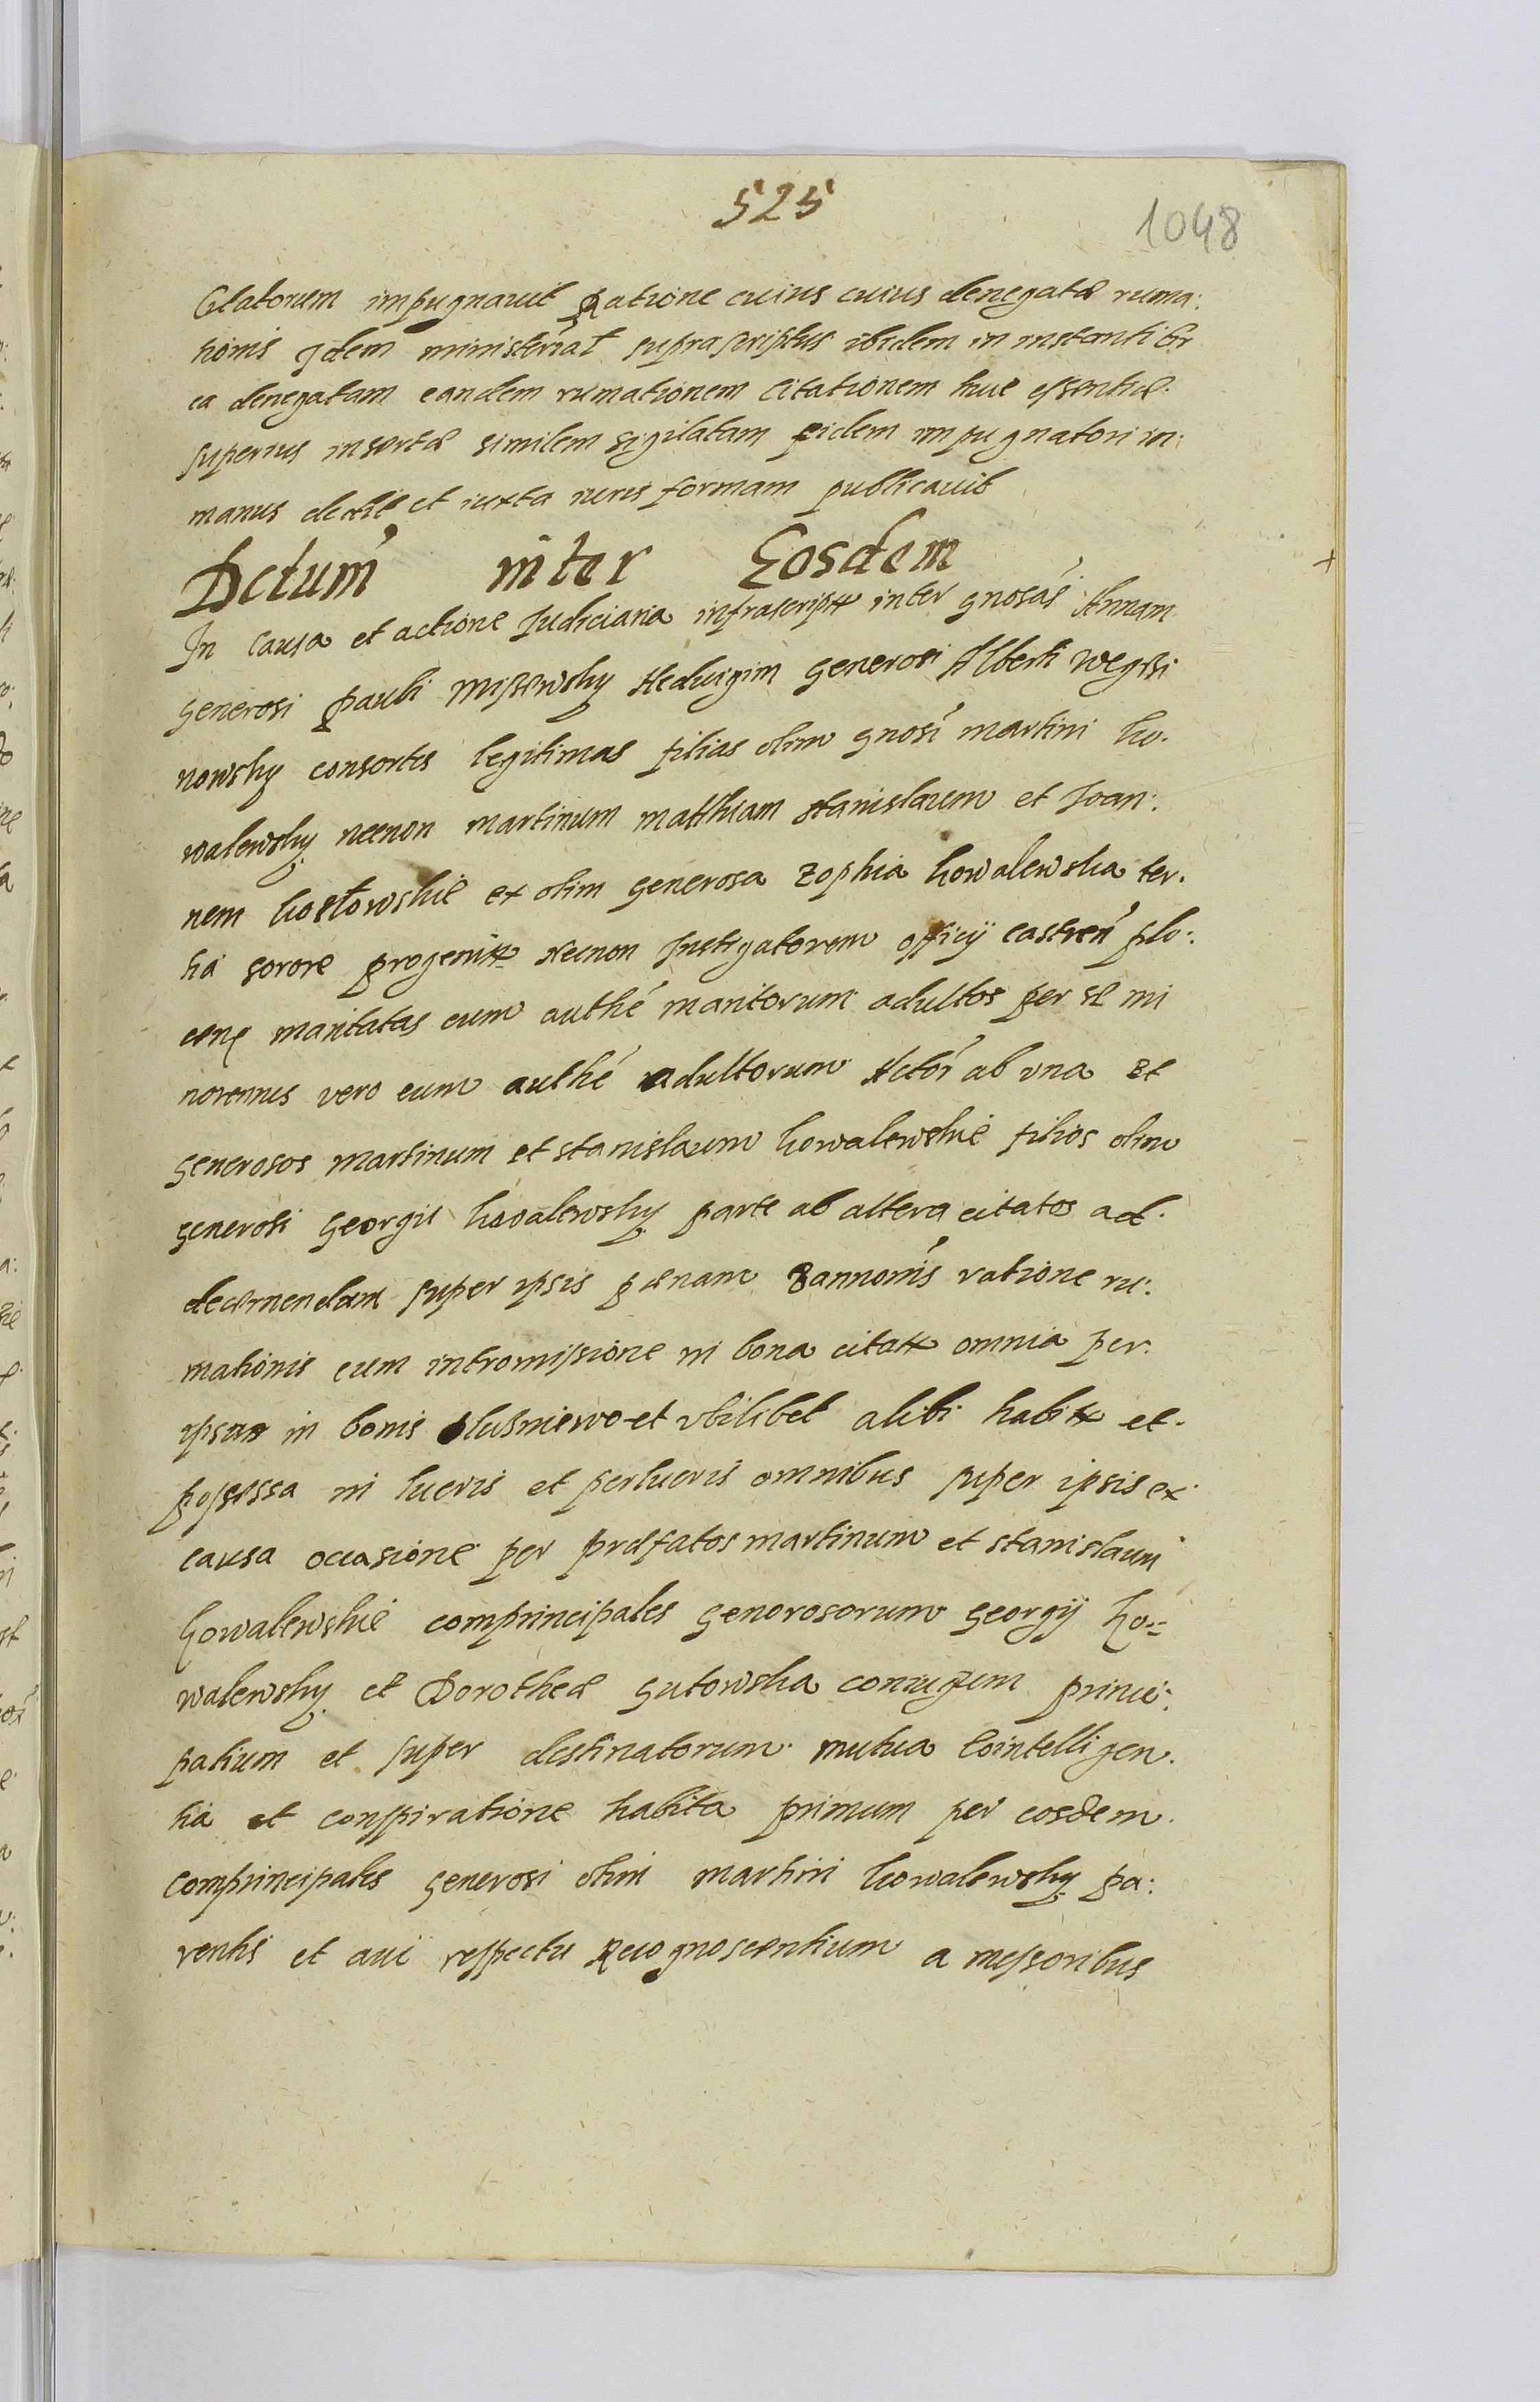 525
1048
Citatorum impugnavit Ratione cuius cuius denegatæ ruma:
tionis Idem ministerial supra scriptus ibidem in instanti
ea denegatam eandem rumationem Citationem huic essentiæ.
superius insertæ similem sigilatam eidem impugnatori in:
manus dedit et iuxta iuris formam publicavit
Actum inter Eosdem
In causa et actione Judiciaria infrascripta inter gnosás Annam
generosi pauli misewsky Hedvigim generosi Alberti wegrzi
nowsky consortes legitimas filias olim gnosi martini ko.
walewsky necnon martinum matthiam stanislaum et Joan:
nem kossowskie ex olim generosa Zophia kowalewska ter.
tia sorore progenitos Necnon Instigatorem officij castren plo:
cens maritatas cum authé maritorum adultos per se mi
norennes vero cum authé adultorum Actór ab una et
generosos martinum et stanislaum kowalewskie filios olim
generosi georgii kowalewsky parte ab altera citatos ad.
decernendam super ipsis pænam bannonis ratione ru:
mationis cum intromissione in bona citator omnia per.
ipsos in bonis slusniewo et vbilibet alibi habita et.
possessa in lucris et perlucris omnibus super ipsis ex
causa occasione per præfatos martinum et stanislaum
kowalewskie comprincipales generosorum georgij ko:
walewsky et Dorotheæ gutowska coniugum princi:
palium et super destinatorum mutua cointelligen.
tia et conspiratione habita primum per eosdem
comprincipales generosi olim martini kowalewsky pa:
rentis et avi respectu Recognoscentium a messoribus